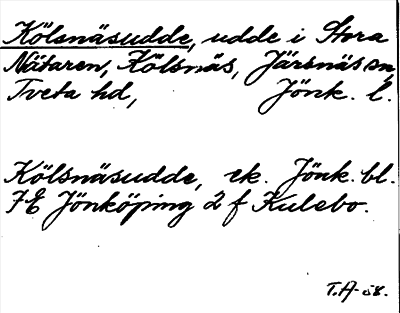 Kölsnäsudde, udde i Stora
Nätaren, Kölsnäs, Järsnäs sn,
Tveta hd, Jönk. l.
Kölsnäsudde, ek. Jönk. bl.
7E Jönköping 2 f Kulebo.
T.A-58.